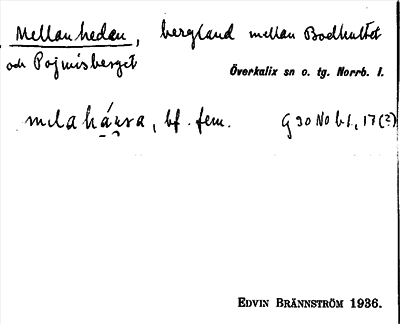 Mellanheden, bergland mellan Bodhultet
och Pojmisberget
Överkalix sn o. tg. Norrb. l.
bf. fem. G 30 No b1, 17(?)
EDVIN BRÄNNSTRÖM 1936.